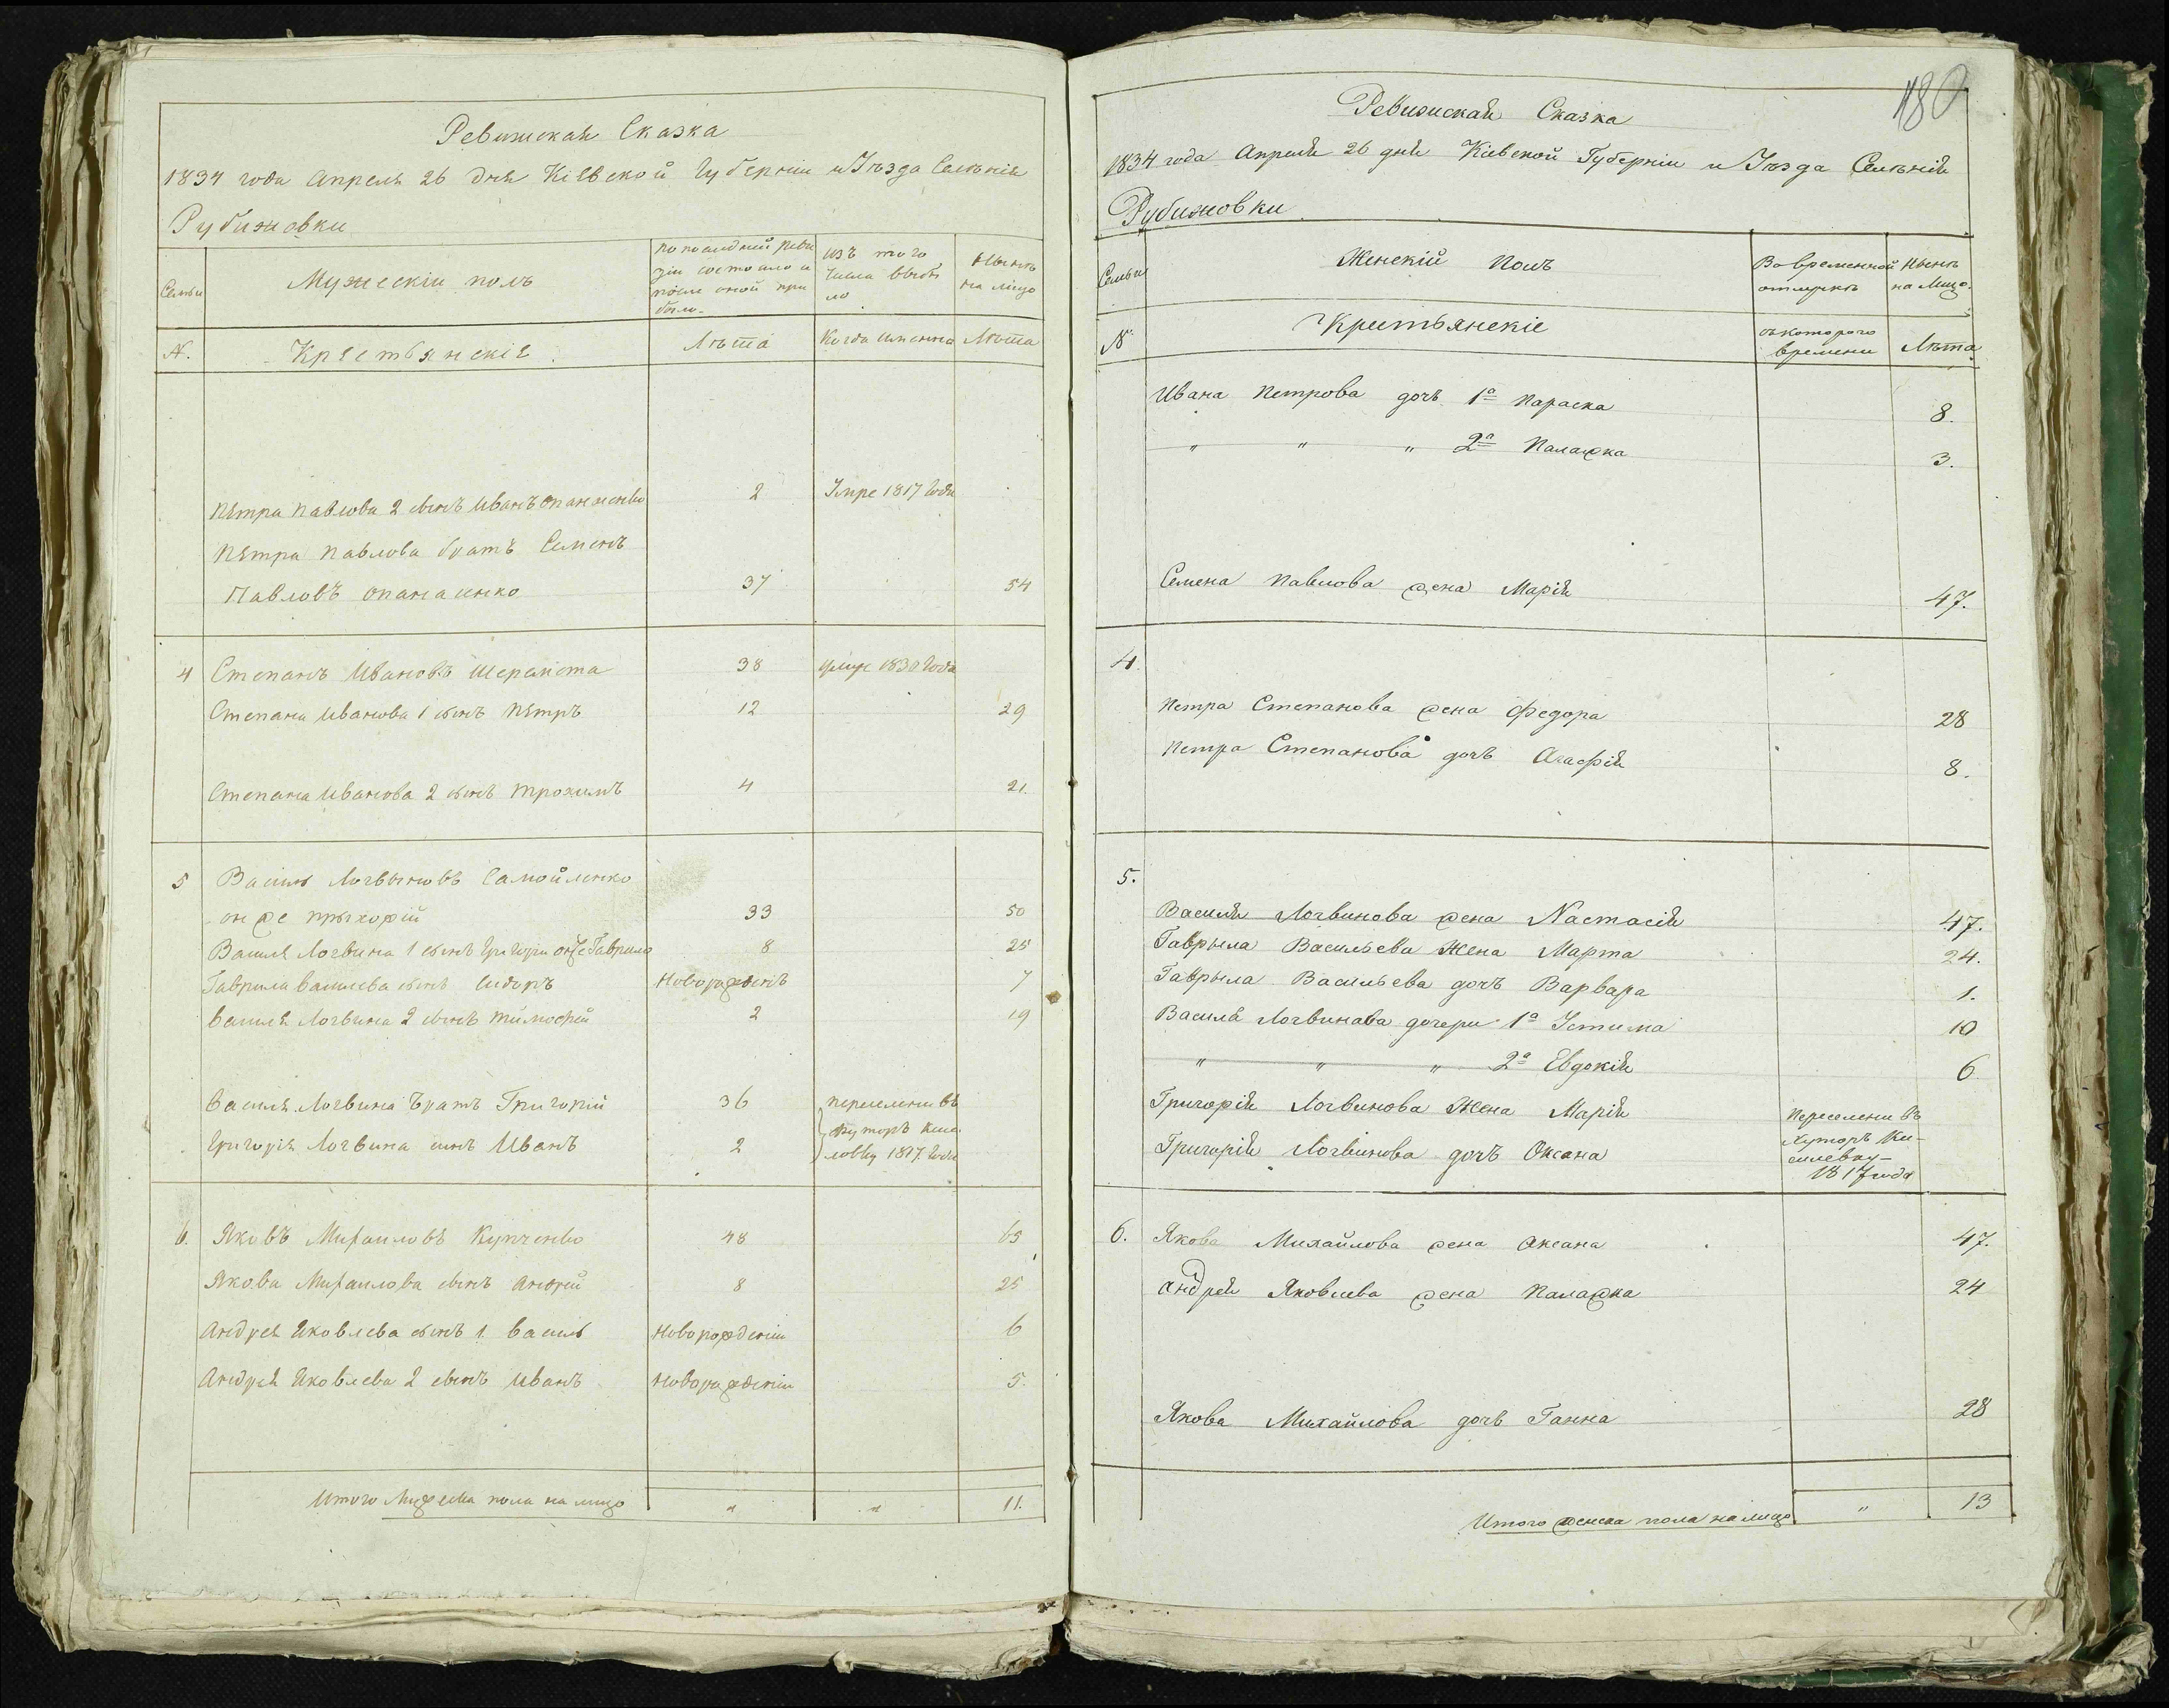 Ревижская Сказка
1834 года Апреля 26 дня Кіевской Губерніи и Уѣзда Селѣнія
Рубижовки
Семьи
Мужескіи полъ
по последней реви
зіи состояло и
после оной при
было.
изъ того
числа выбы
ло
Нынѣ
на лицо
N.
Крестьянскіе
Лѣта
Когда именно
Лѣта
Петра Павлова 2 сынъ Иванъ Опанасенко
2
Умре 1817 Года
Петра Павлова братъ Семенъ
Павловъ Опанасенко
37
54
4
Степанъ Ивановъ Шеремета
38
умре 1830 Года
Степана Иванова 1 сынъ Петръ
12
29
Степана Иванова 2 сынъ Трохимъ
4
21.
5
Василь Логвыновъ Самойленко
онже Прыхорій
33
50
Василя Логвина 1 сынъ Григори онже Гаврило
8
25
Гаврила Василева сынъ Сидоръ
Новорожденъ
7
Василя Логвина 2 сынъ Тимофей
2
19
Василя Логвина братъ Григорій
36
переселени въ
Григорія Логвина сынъ Иванъ
2
хуторъ Киси
ловку 1817. Года
6.
Яковъ Михаиловъ Купченко
48
65
Якова Михаилова сынъ Андрей
8
25
Андрея Яковлева сынъ 1. Василь
Новорожденіи
6
Андрея Яковлева 2 сынъ Иванъ
Новорожденіи
5.
Итого Мужеска пола на лицо
"
"
11.
180
Ревижская Сказка
1834 года Апреля 26 дня Кіевской Губерніи и Уѣзда Селѣнія
Рубижовки
Семьи
Женскій Полъ
Во временной
отлучкѣ
Нынѣ
на Лицо.
N
Крестьянскіе
съ котораго
времени
Лѣта
Ивана Петрова дочъ 1а Параска
8.
" " " 2а Палажка
3.
Семена Павлова жена Марія
47.
4.
Петра Степанова жена Федора
28
Петра Степанова дочъ Агафія
8.
5.
Василя Логвинова жена Настасія
47.
Гаврыла Васильева Жена Марта
24.
Гаврыла Васильева дочъ Варвара
1.
Василя Логвинова дочери 1а Устима
10
" " " 2а Евдокія
6
Григорія Логвинова Жена Марія
Переселени въ
Григорія Логвинова дочъ Оксана
хуторъ Ки-
силевку-
1817 года
6.
Якова Михайлова жена Оксана
47.
Андрея Яковлева жена Палажка
24
Якова Михайлова дочъ Ганна
28
Итого женска пола на лицо
"
13